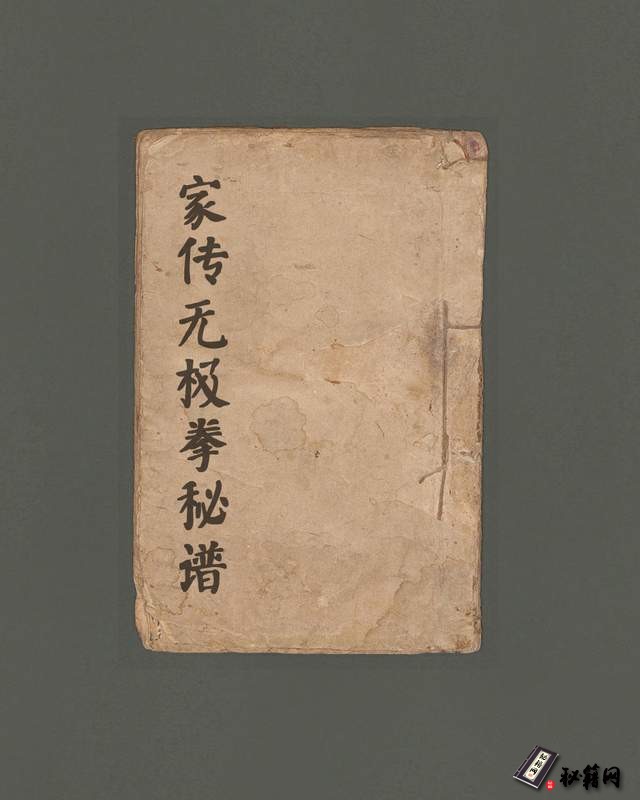 家传无极拳秘谱
秘籍网